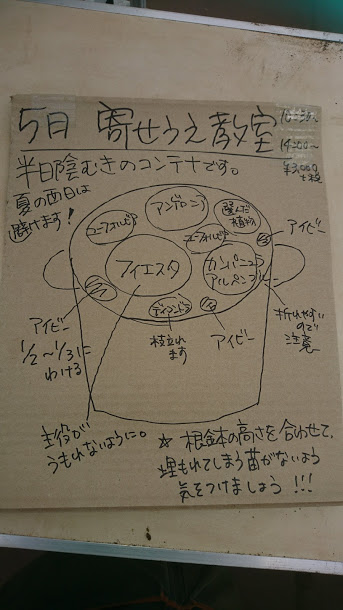 5月 寄せうえ教室
14:00~
¥3,000
+税
半日陰むきのコンテナです。
夏の西日は
避けます!
アンゲロニア
選んだ
植物
ユーフォルビア
ユーフォルビア
アイビー
フィエスタ
カンパニュラ
アルペンブルー
ディアンドラ
アイビー
1/2~1/3に
わける
枝垂れ
ます
アイビー
折れやすい
ので
注意
主役が
うもれないように。
☆ 根鉢本の高さを合わせて、
埋もれてしまう苗がないよう
気をつけましょう!!!